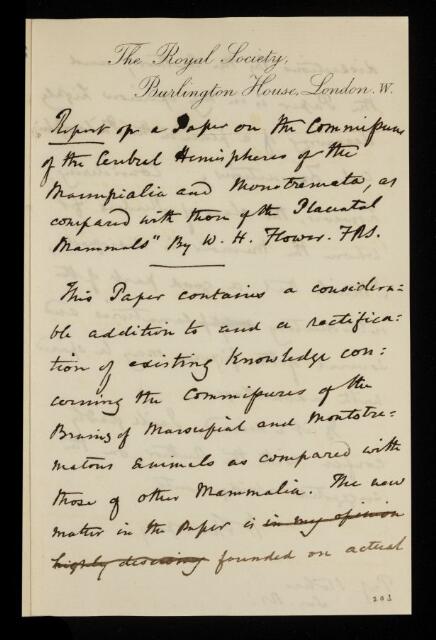 The Royal Society,
Burlington House, London. W.
Report on a Paper on the Commissures
of the Cerebral Hemispheres of the
Marsupialia and Monotremata, as
compared with those of the Placental
Mammals" By W. H. Flower. FRS.
This Paper contains a considera=
ble addition to and a rectifica=
tion of existing Knowledge con=
cerning the Commissures of the
Brains of Marsupial and Monotre=
matous Animals as compared with
those of other Mammalia. The new
matter in the Paper is in my opinion
highly deserving founded on actual
203